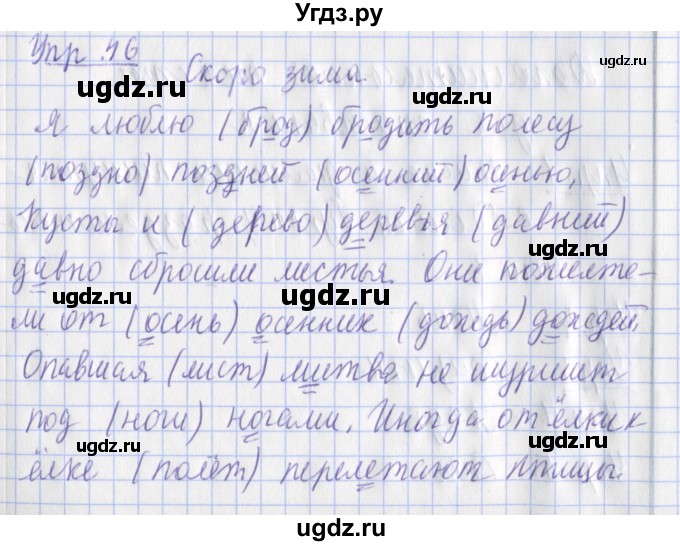 Угдз.ру
Упр 46
Скоро зима.
Я люблю (брод) бродить полесу
(поздно) поздней (осенний) осенью,
Кусты и (дерево) деревья (давний)
давно сбросили листья. Они пожелте-
ли от (осень) осенних (дождь) дождей.
Опавшая (лист) листва не шуршит
под (ноги) ногами. Иногда от ёлки к
ёлке (полёт) перелетают птицы.
ugdz.ru
ugdz.ru
ugdz.ru
ugdz.ru
ugdz.ru
ugdz.ru
ugdz.ru
ugdz.ru
ugdz.ru
ugdz.ru
ugdz.ru
ugdz.ru
ugdz.ru